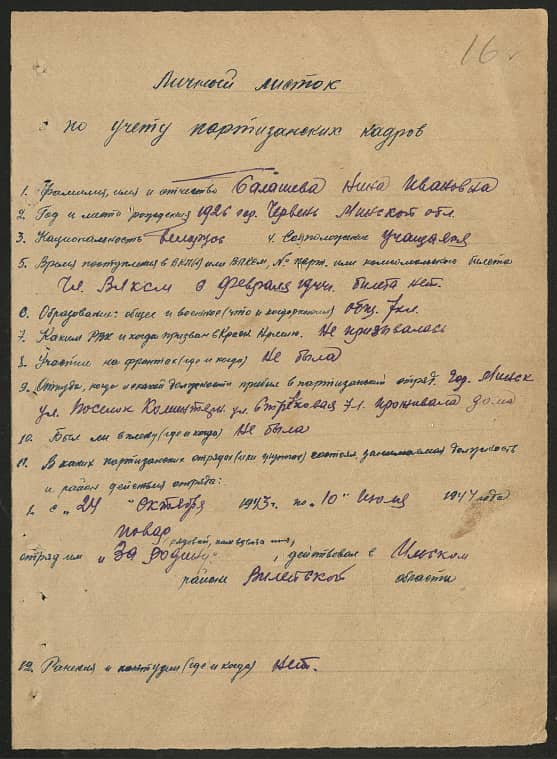 16
Личный листок
по учету партизанских кадров
1. Фамилия, имя и отчество Балашева Нина Ивановна
2. Год и место рождения 1926 гор. Червень Минской обл.
3. Национальность беларус 4. Соцположение учащаяся
5. Время поступления в ВКП(б) или ВЛКСМ, № парт. или комсомольского билета
Чл. ВЛКСМ с февраля 1944. билета нет.
6. Образование: общее и военное (что и когда окончил) общ. 7 кл.
7. Каким РВК и когда призван в Красн. Армию. Не призывалась
8. Участие на фронтах (где и когда) Не была
9. Откуда, когда и какой должности прибыл в партизанский отряд. Гор. Минск
ул. Поселок Коминтерн. ул. Стрелковая 71. проживала дома
10. Был ли в плену (где и когда) Не была
11. В каких партизанских отрядах (или группах) состоял, занимаемая должность
и район действия отряда:
1. с „ 24 " Октября 1943 г. по „ 10 " Июля 1944 года
повар
рядовой, ком. взвода
отряд им „За Родину" , действовал в Ильском
районе Вилейской области
12. Ранения и контузии (где и когда) Нет.